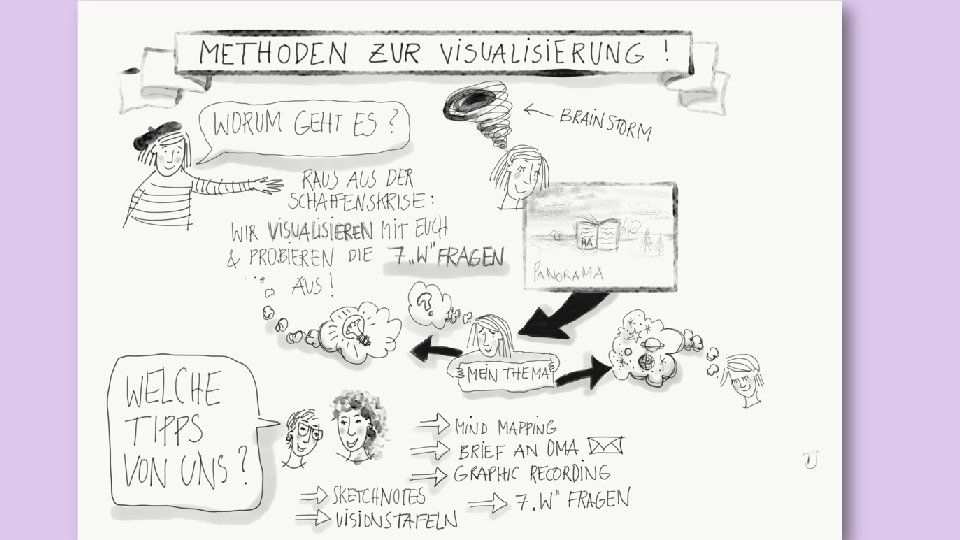 METHODEN ZUR VISUALISIERUNG !
WORUM GEHT ES ?
BRAINSTORM
RAUS AUS DER
SCHAFFENSKRISE :
WIR VISUALISIEREN MIT EUCH
& PROBIEREN DIE 7 „W" FRAGEN
... AUS !
HA
PANORAMA
?
MEIN THEMA
WELCHE
TIPPS
VON UNS ?
MIND MAPPING
BRIEF AN OMA
GRAPHIC RECORDING
SKETCHNOTES
7 „W" FRAGEN
VISIONSTAFELN